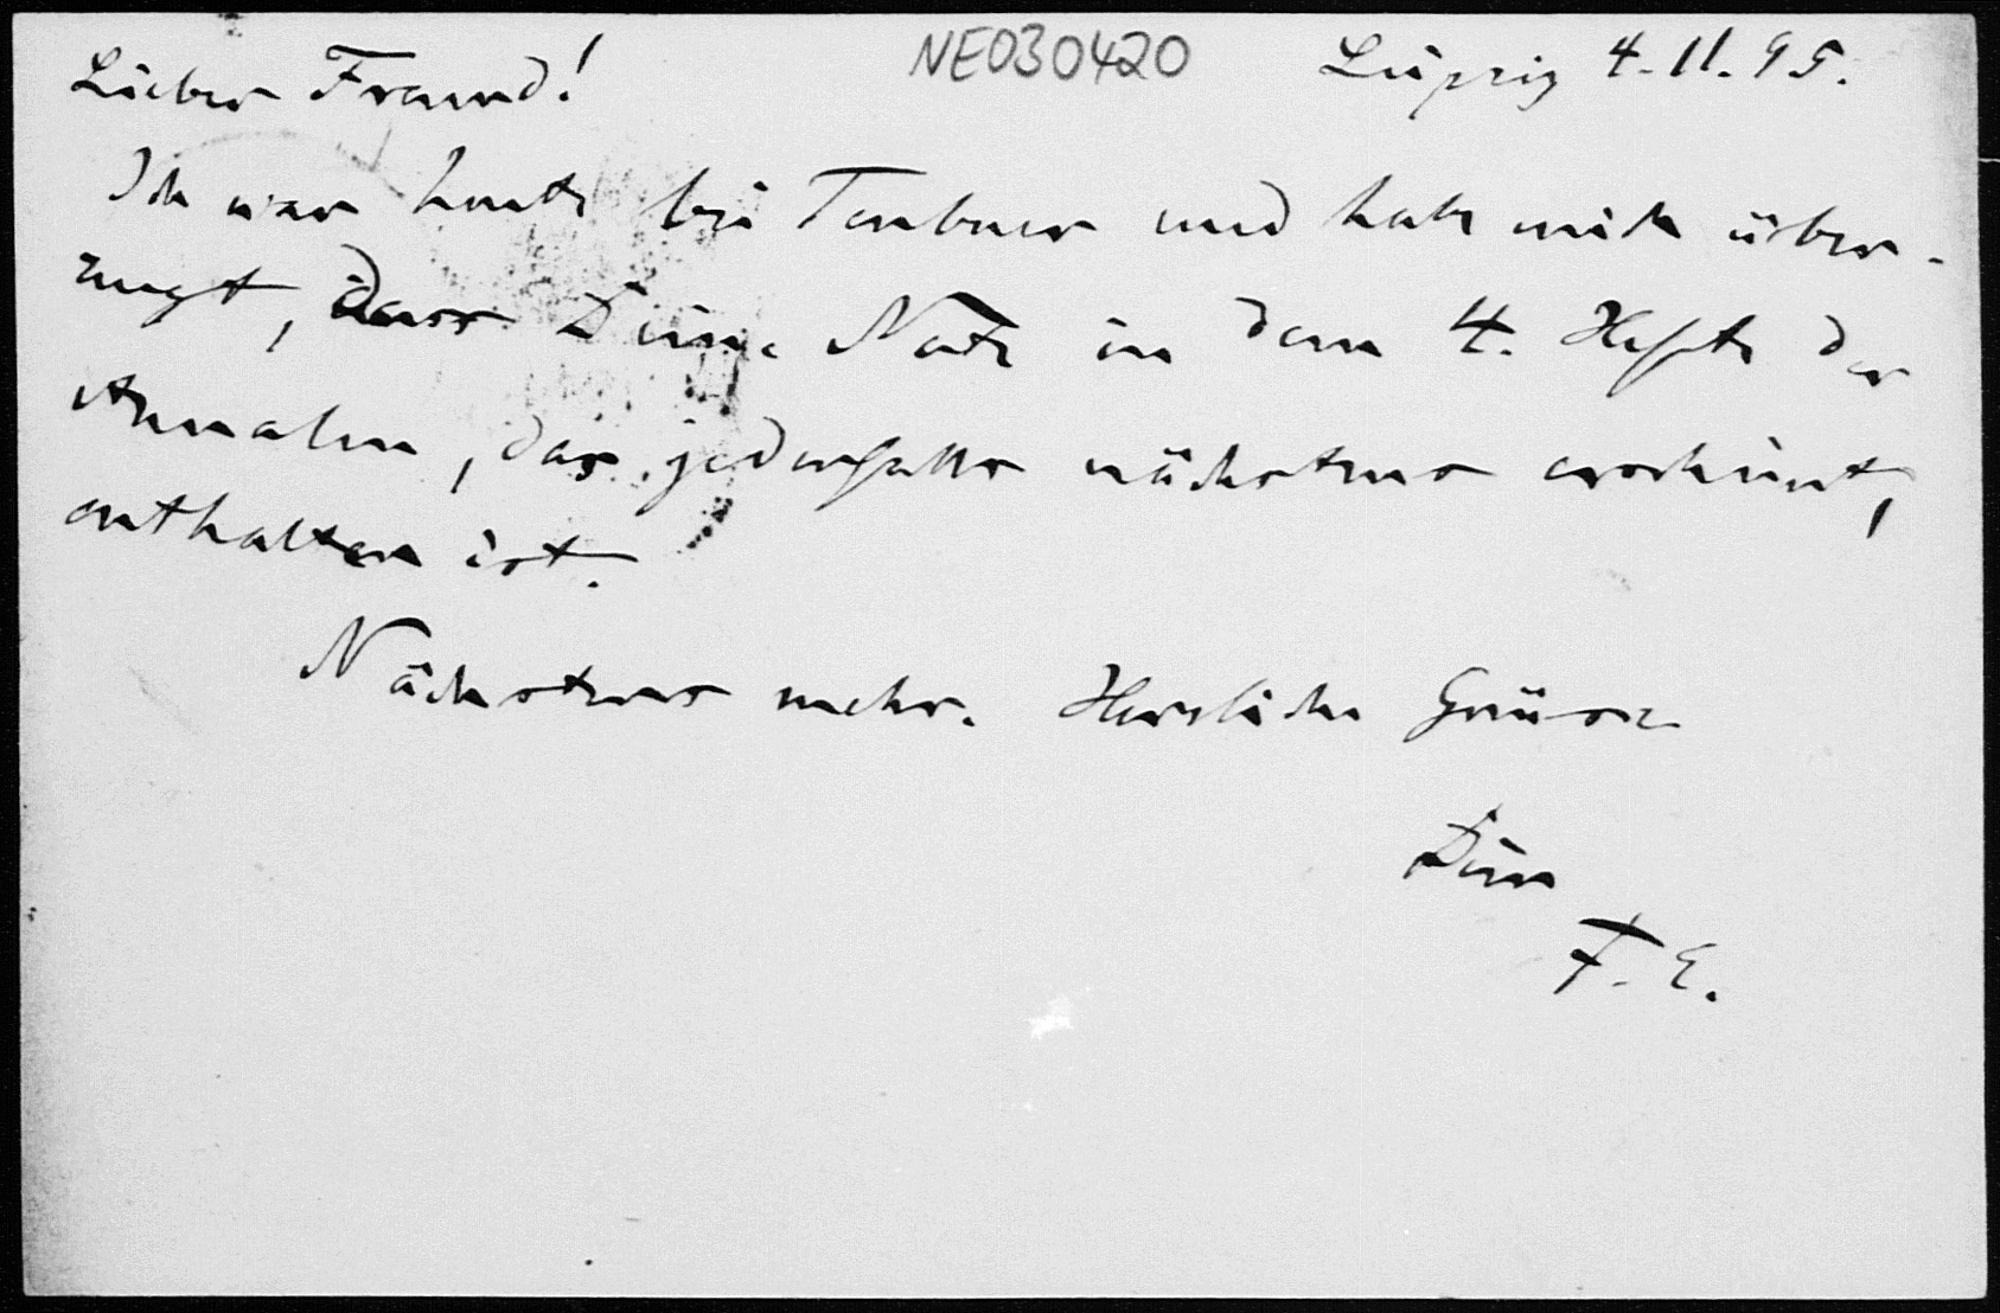 NE030420
Lieber Freund! Leipzig 4.11.95.
Ich war heute bei Teubner und habe mich über-
zeugt, dass Deine Note in dem 4. Hefte der
Annalen, das jedenfalls nächstens erscheint,
enthalten ist.
Nächstens mehr. Herzliche Grüsse
Dein
F. E.